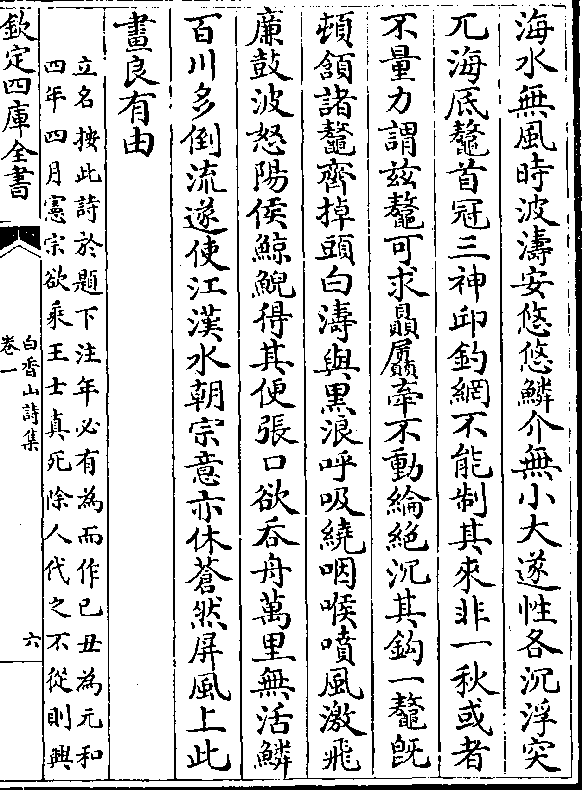 海水無風時波濤安悠悠鱗介無小大遂性各沉浮突
兀海底鼇首冠三神丘釣網不能制其來非一秋或者
不量力謂兹鼇可求贔屭牽不動綸絶沉其鈎一鼇旣
頓頷諸鼇齊掉頭白濤與黒浪呼吸繞咽喉噴風激飛
廉鼓波怒陽侯鯨鯢得其便張口欲吞舟萬里無活鱗
百川多倒流遂使江漢水朝宗意亦休蒼然屏風上此
畫良有由
立名按此詩於題下注年必有為而作已丑為元和
四年四月憲宗欲乘王士真死除人代之不從則興
欽定四庫全書
白香山詩集
卷一
六